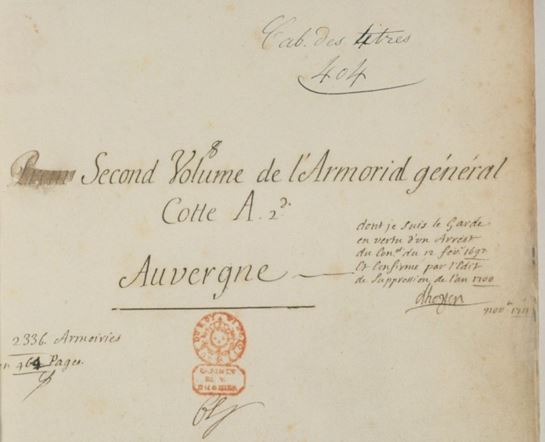 Cab. des titres
404
Second Volume de l'Armorial général
8
Cotte A. 2d.
Auvergne
dont je suis le Garde
en vertu d'un Arrest
du Conel du 12 fevr 1697
Et Confirmé par l'Edit
de Suppression de l'an 1700
dhozier
novre
2336. Armoiries
464 Pages.